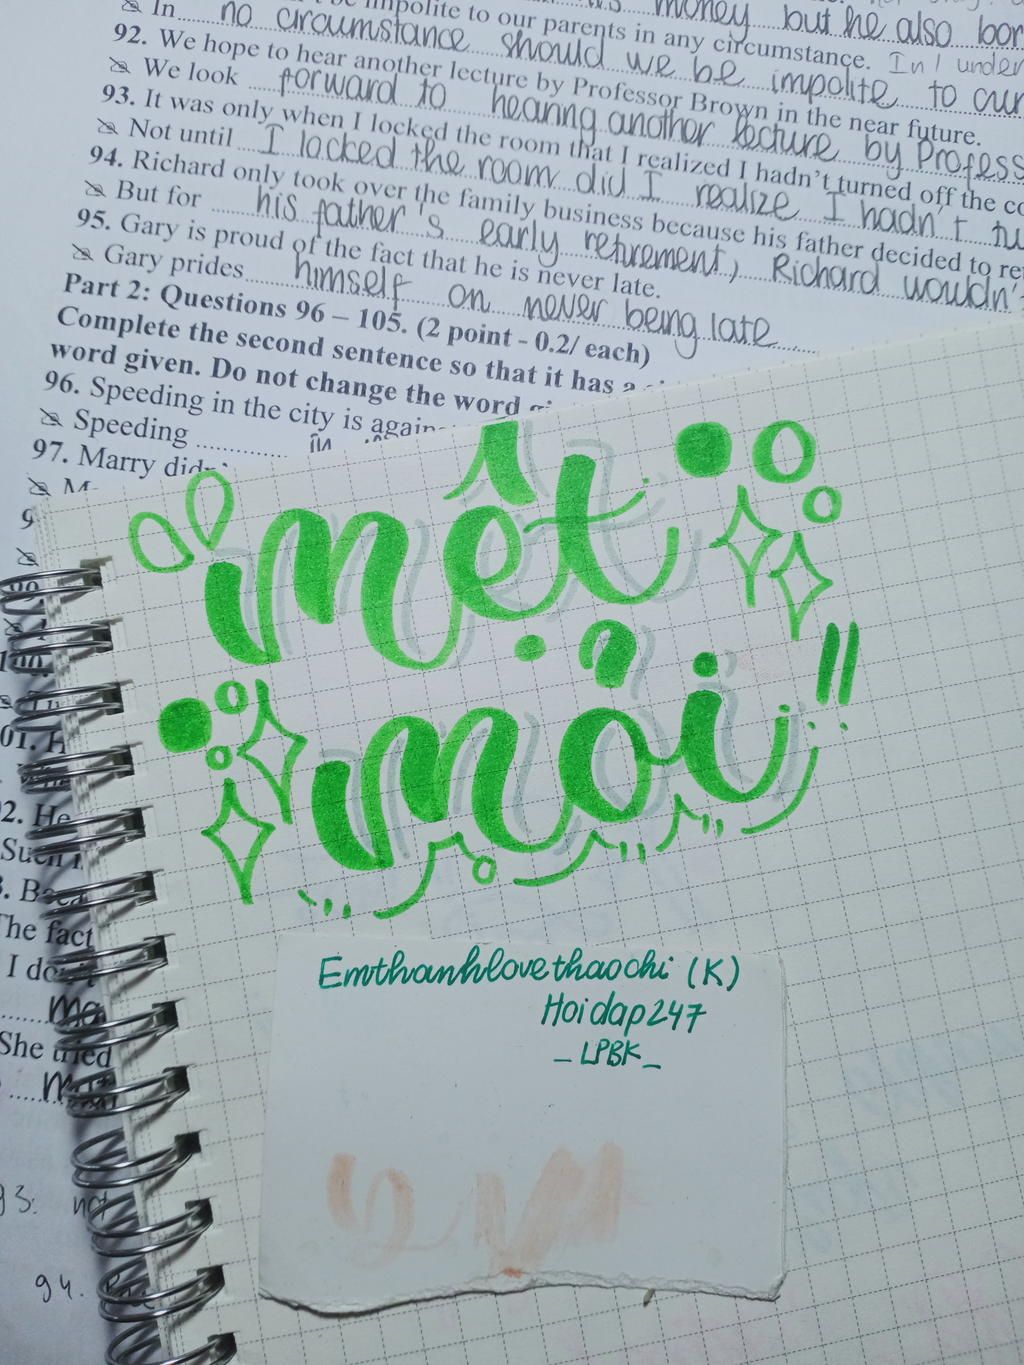 money but he also
impolite to our parents in any circumstance.
In no circumstance should we be impolite to our
92. We hope to hear another lecture by Professor Brown in the near future.
We look forward to hearing another lecture by
93. It was only when I locked the room that I realized I hadn't turned off the
Not until I locked the room did I realize I hadn't
94. Richard only took over the family business because his father decided to
But for his father's early retirement, Richard wouldn't
95. Gary is proud of the fact that he is never late.
Gary prides himself on never being late
Part 2: Questions 96 – 105. (2 point - 0.2/ each)
Complete the second sentence so that it has a
word given. Do not change the word
96. Speeding in the city is
Speeding
97. Marry
mệt
mỏi !!
He
The fact
She tried
Emthanhlovethaochi (K)
Hoidap247
_LPBK_
93. not
94.